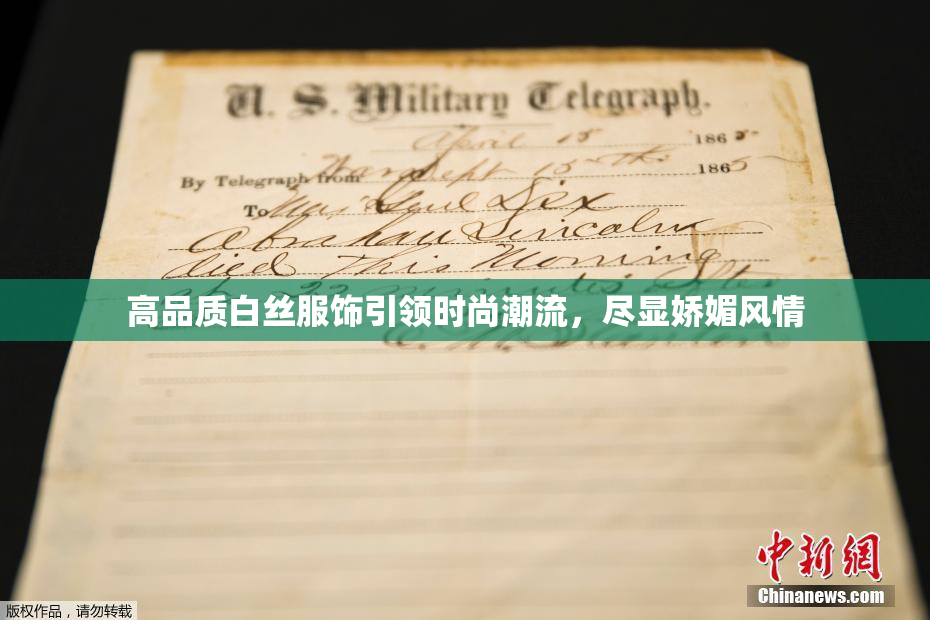 U. S. Military Telegraph.
April 15 1865
By Telegraph from War Dept 15th 1865
To Maj Genl Dix
Abraham Lincoln
died This Morning
at 22 minutes after
高品质白丝服饰引领时尚潮流，尽显娇媚风情
E. M. Stanton
中新网
Chinanews.com
版权作品，请勿转载